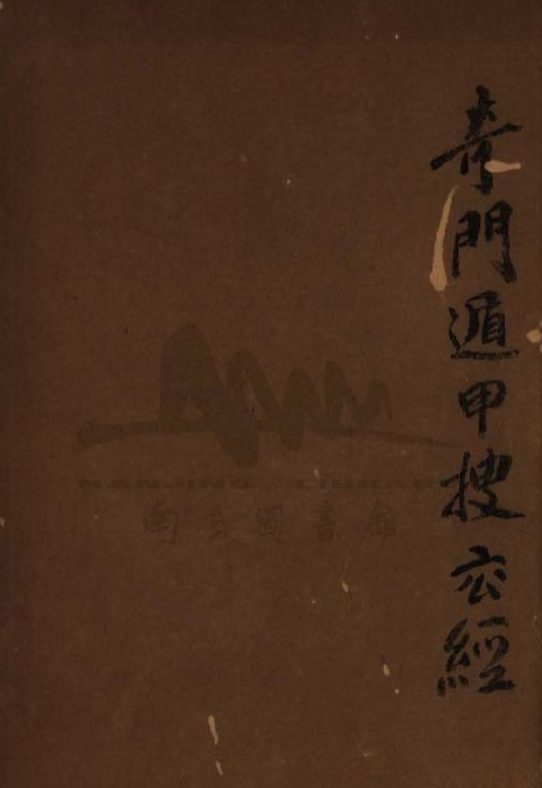 奇門遁甲搜玄經
NANJING LIBRARY
南京圖書館